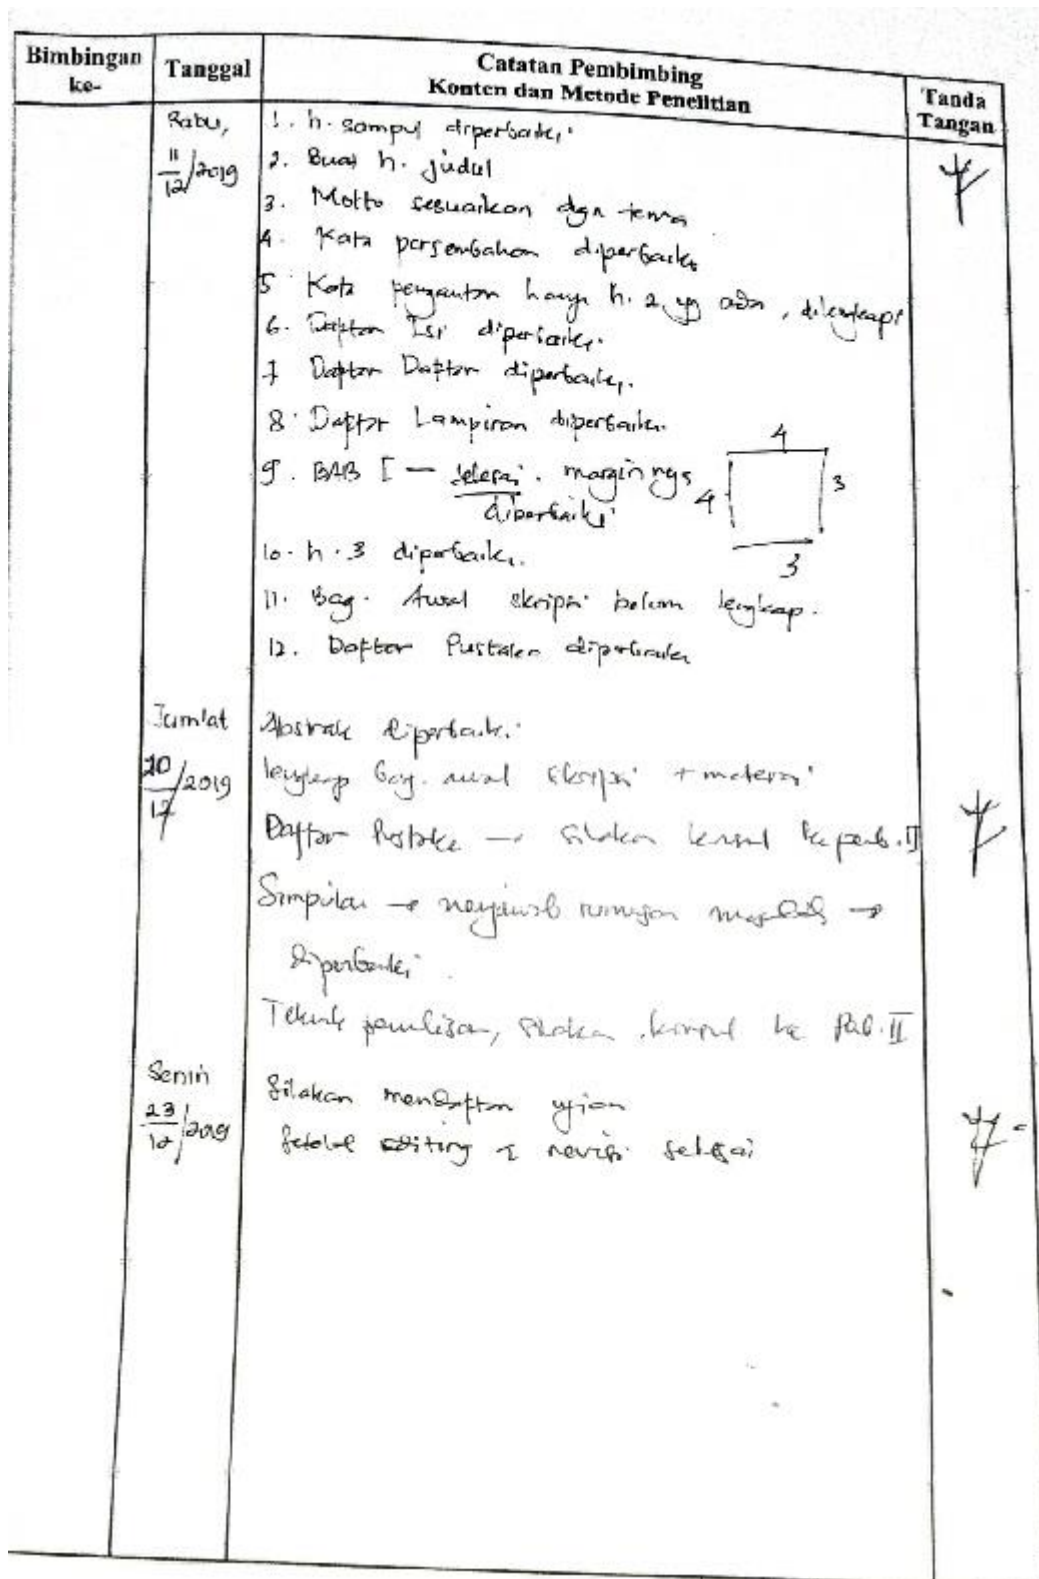 Bimbingan ke-
Tanggal
Catatan Pembimbing
Konten dan Metode Penelitian
Tanda Tangan
Rabu,
11/12/2019
1. h. sampul diperbaiki
2. Buat h. judul
3. Motto sesuaikan dgn tema
4. Kata persembahan diperbaiki
5 Kata pengantar hanya h. 2 yg ada, dilengkapi
6. Daftar Isi diperbaiki.
7 Daftar Daftar diperbaiki.
8. Daftar Lampiran diperbaiki.
9. BAB I — selesai. marginnya
diperbaiki
4
4
3
3
10. h. 3 diperbaiki.
11. Bag. Awal skripsi belum lengkap.
12. Daftar Pustaka diperbaiki
Jum'at
20/12/2019
Abstrak diperbaiki.
lengkap bag. awal skripsi + materai
Daftar Pustaka → silakan konsul ke pemb. II
Simpulan → menjawab rumusan masalah →
diperbaiki.
Teknik penulisan, silakan konsul ke Pemb. II
Senin
23/12/2019
Silakan mendaftar ujian
editing & revisi selesai